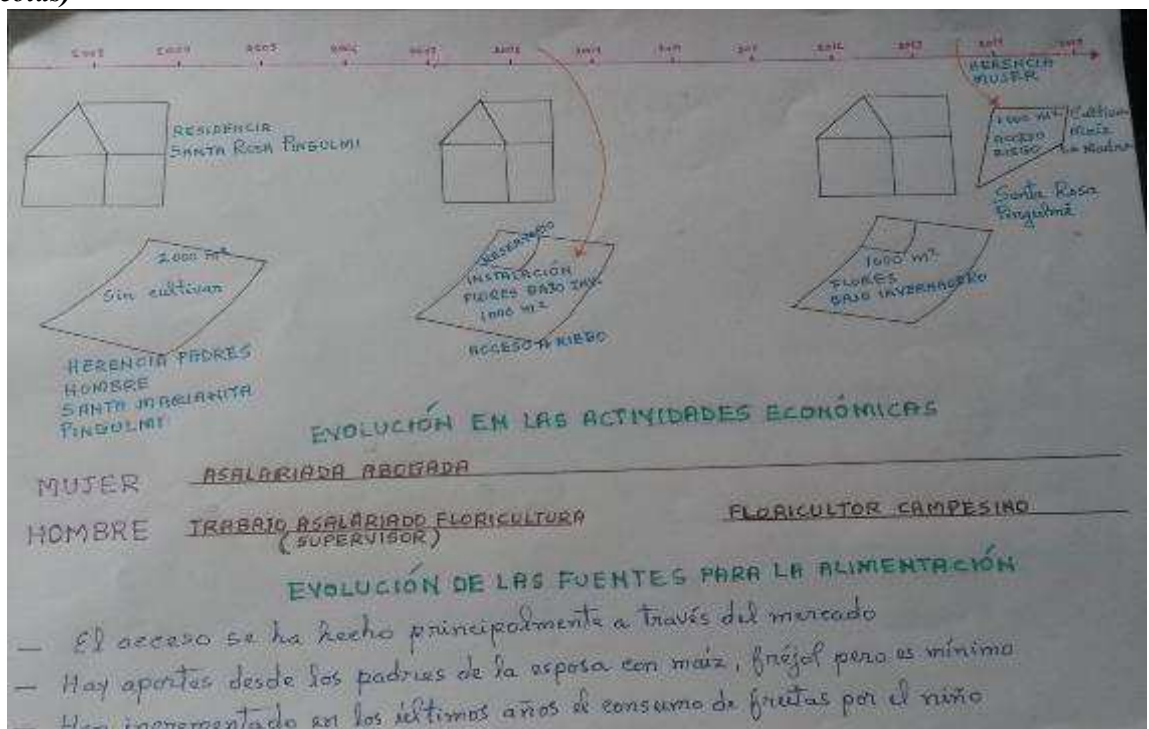 2005
2006
RESIDENCIA
SANTA ROSA PINGULMI
HERENCIA
MUJER
1000 m²
ACCESO
RIEGO
Cultivan
Maíz
La Madre
Santa Rosa
Pingulmí
2.000 m²
Sin cultivar
HERENCIA PADRES
HOMBRE
SANTA MARIANITA
PINGULMI
RESERVORIO
INSTALACIÓN
FLORES BAJO INV.
1000 m²
ACCESO A RIEGO
1000 m²
FLORES
BAJO INVERNADERO
EVOLUCIÓN EN LAS ACTIVIDADES ECONÓMICAS
MUJER ASALARIADA ABOGADA
HOMBRE TRABAJO ASALARIADO FLORICULTURA FLORICULTOR CAMPESINO
(SUPERVISOR)
EVOLUCIÓN DE LAS FUENTES PARA LA ALIMENTACIÓN
— El acceso se ha hecho principalmente a través del mercado
— Hay aportes desde los padres de la esposa con maíz, fréjol pero es mínimo
— Han incrementado en los últimos años el consumo de frutas por el niño